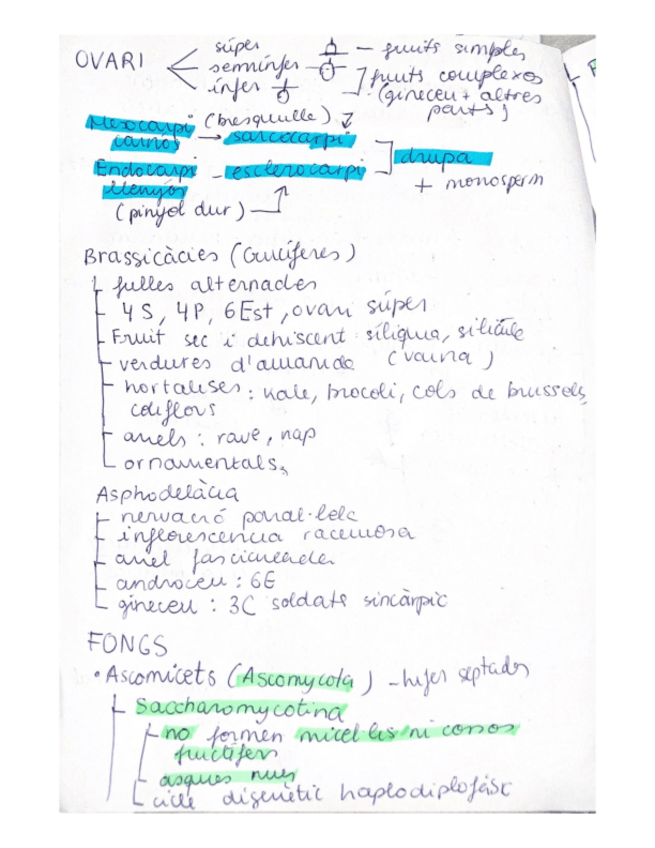 OVARI
súper — fruits simples
semiínfer
ínfer
fruits complexos
(gineceu + altres
parts)
Mexocarpi (bresquille)
carnós → sarcocarpi
Endocarpi – esclerocarpi
drupa
llenyós
+ monosperm
(pinyol dur)
Brassicàcies (Crucíferes)
fulles alternades
4S, 4P, 6Est, ovari súper
Fruit sec i dehiscent síliqua, silícule
verdures d'amanida (vaina)
hortalises: kale, brocoli, cols de brussels,
coliflors
arrels: rave, nap
ornamentals
Asphodelàcia
nervació paral·lela
inflorescència racemosa
arrel fasciculada
androceu: 6E
gineceu: 3C soldats sincàrpic
FONGS
• Ascomicets (Ascomycota) – hifes septades
Saccharomycotina
no formen micel·lis ni cossos
fructífers
asques nues
cicle digenètic haplodiplofàsic